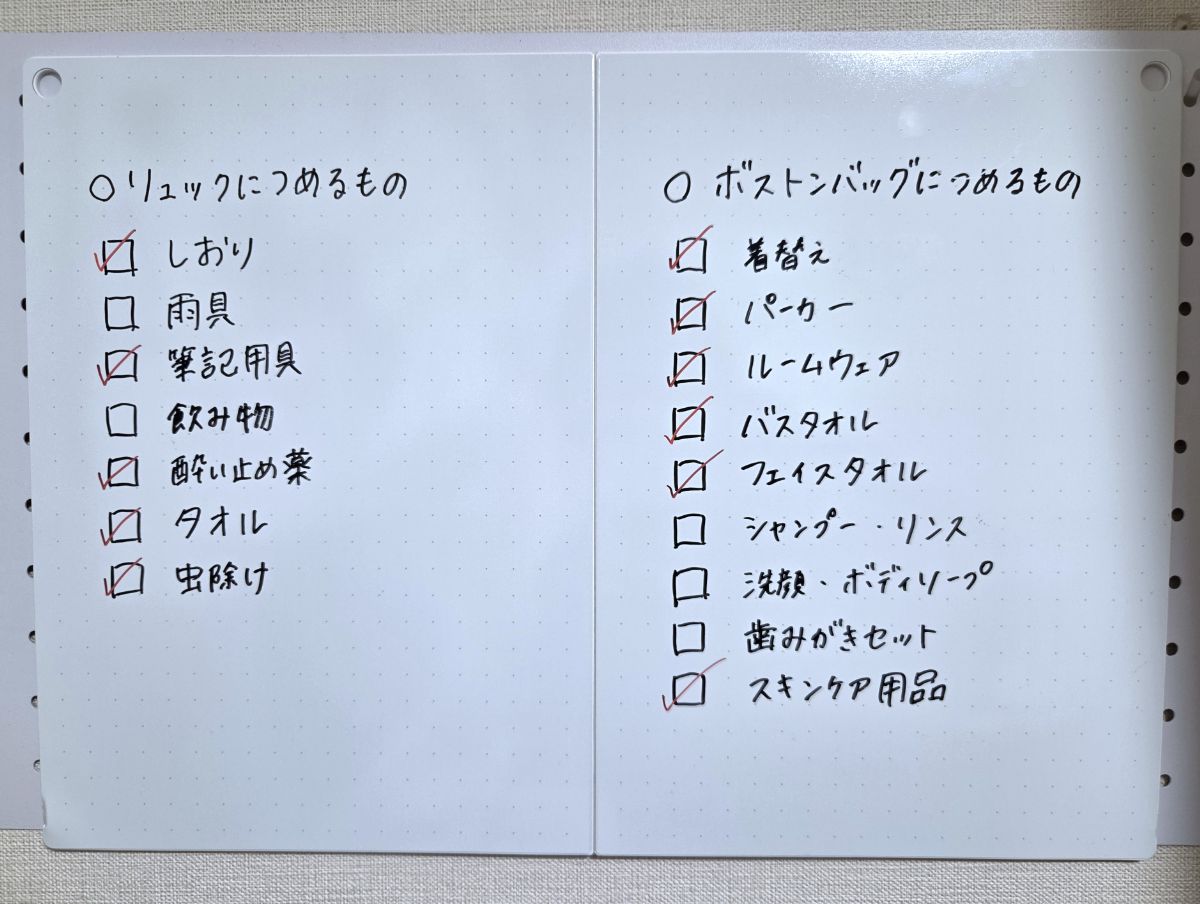 ○リュックにつめるもの
☑ しおり
☐ 雨具
☑ 筆記用具
☐ 飲み物
☑ 酔い止め薬
☑ タオル
☑ 虫除け
○ ボストンバッグにつめるもの
☑ 着替え
☑ パーカー
☑ ルームウェア
☑ バスタオル
☑ フェイスタオル
☐ シャンプー・リンス
☐ 洗顔・ボディソープ
☐ 歯みがきセット
☑ スキンケア用品